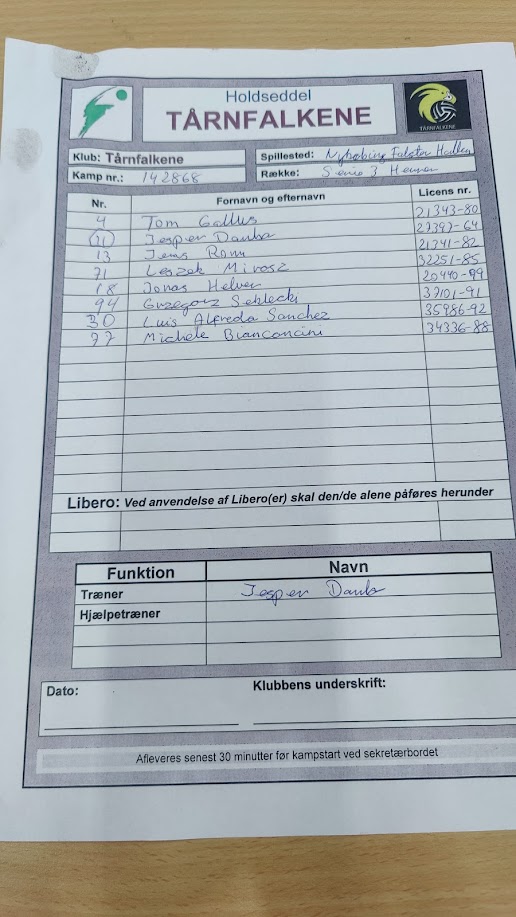 Holdseddel
TÅRNFALKENE
TÅRNFALKENE
Klub: Tårnfalkene
Spillested: Nykøbing Falster Hallen
Kamp nr.: 142868
Række: Serie 3 Herrer
Nr. Fornavn og efternavn Licens nr.
4 Tom Gallus 21343-80
11 Jesper Danbo 27397-64
13 Jens Rom 21341-82
71 Leszek Mirosz 32251-85
18 Jonas Helver 20440-99
94 Grzegorz Seklecki 37101-91
30 Luis Alfredo Sanchez 35986-92
77 Michele Bianconcini 34336-88
Libero: Ved anvendelse af Libero(er) skal den/de alene påføres herunder
Funktion Navn
Træner Jesper Danbo
Hjælpetræner
Dato: Klubbens underskrift:
Afleveres senest 30 minutter før kampstart ved sekretærbordet